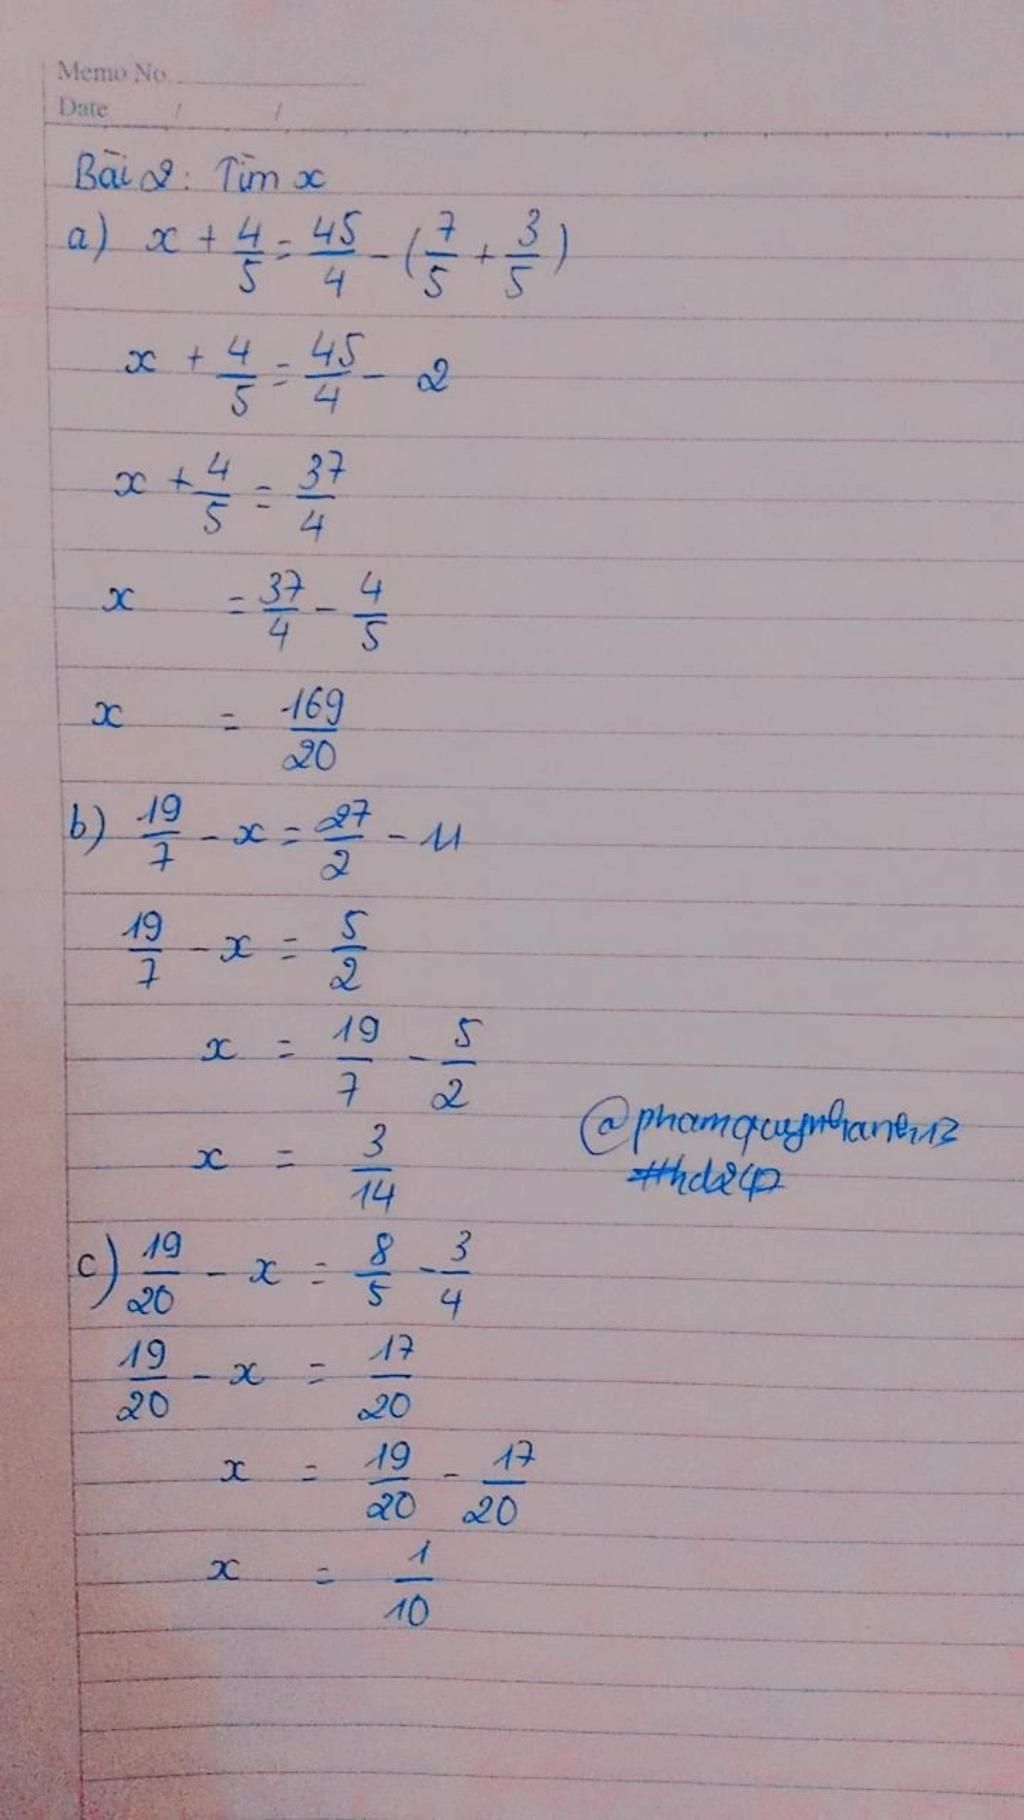 Memo No.
Date / /
Bài 2: Tìm x
a) x + 4/5 = 45/4 - (7/5 + 3/5)
x + 4/5 = 45/4 - 2
x + 4/5 = 37/4
x = 37/4 - 4/5
x = 169/20
b) 19/7 - x = 27/2 - 11
19/7 - x = 5/2
x = 19/7 - 5/2
x = 3/14
@phamquynhanh13
#hd247
c) 19/20 - x = 8/5 - 3/4
19/20 - x = 17/20
x = 19/20 - 17/20
x = 1/10